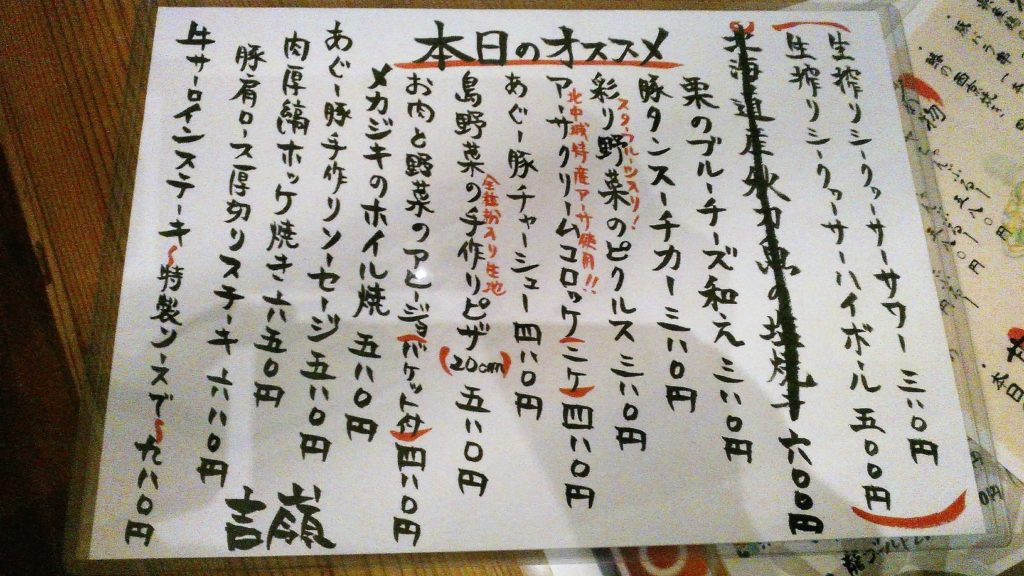 本日のオススメ
生搾りシークァーサーサワー 三八〇円
生搾りシークァーサーハイボール 五〇〇円
北海道産 六〇〇円
栗のブルーチーズ和え 三八〇円
豚タンスーチカー 三八〇円
スターフルーツ入り！
彩り野菜のピクルス 三八〇円
北中城特産アーサ使用!!
アーサクリームコロッケ(二ケ) 四八〇円
あぐー豚チャーシュー 四八〇円
全粒粉入り生地
島野菜の手作りピザ(20cm) 五八〇円
お肉と野菜のアヒージョ(バケット付) 四八〇円
メカジキのホイル焼 五八〇円
あぐー豚手作りソーセージ 五八〇円
肉厚縞ホッケ焼き 六五〇円
豚肩ロース厚切りステーキ 六八〇円
牛サーロインステーキ〜特製ソースで〜 九八〇円
吉嶺